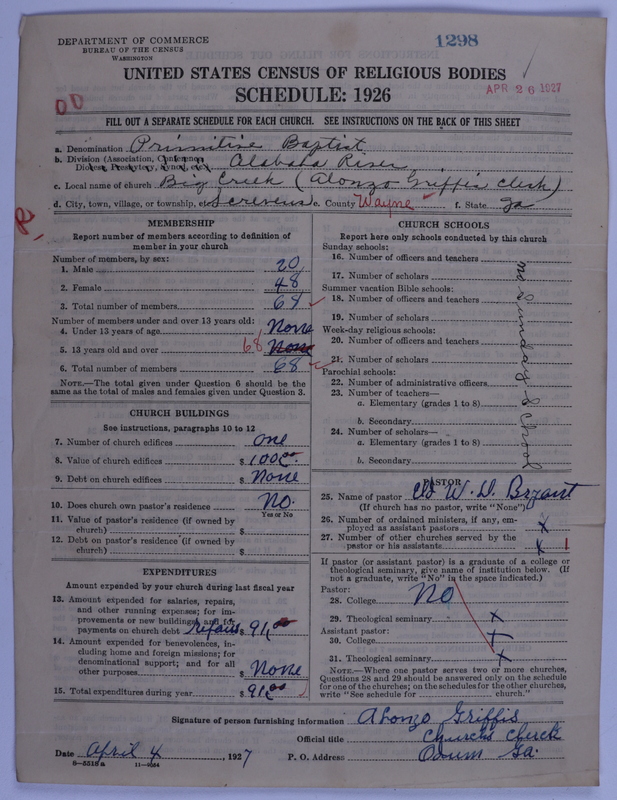 DEPARTMENT OF COMMERCE
BUREAU OF THE CENSUS
WASHINGTON
1298
UNITED STATES CENSUS OF RELIGIOUS BODIES
APR 26 1927
SCHEDULE: 1926
FILL OUT A SEPARATE SCHEDULE FOR EACH CHURCH. SEE INSTRUCTIONS ON THE BACK OF THIS SHEET
a. Denomination Primitive Baptist
b. Division (Association, Conference, Diocese, Presbytery, Synod, etc.) Alabaha River
c. Local name of church Big Creek (Alonzo Griffis Clerk)
d. City, town, village, or township, etc. Screvens e. County Wayne f. State Ga
MEMBERSHIP
Report number of members according to definition of
member in your church
Number of members, by sex:
1. Male 20
2. Female 48
3. Total number of members 68
Number of members under and over 13 years old:
4. Under 13 years of age None
5. 13 years old and over 68 None
6. Total number of members 68
NOTE.—The total given under Question 6 should be the
same as the total of males and females given under Question 3.
CHURCH BUILDINGS
See instructions, paragraphs 10 to 12
7. Number of church edifices one
8. Value of church edifices $ 1000.00
9. Debt on church edifices $ None
10. Does church own pastor's residence No.
Yes or No
11. Value of pastor's residence (if owned by
church) $
12. Debt on pastor's residence (if owned by
church) $
EXPENDITURES
Amount expended by your church during last fiscal year
13. Amount expended for salaries, repairs,
and other running expenses; for im-
provements or new buildings and for
payments on church debt Repairs $ 91.00
14. Amount expended for benevolences, in-
cluding home and foreign missions; for
denominational support; and for all
other purposes $ None
15. Total expenditures during year $ 91.00
CHURCH SCHOOLS
Report here only schools conducted by this church
Sunday schools:
16. Number of officers and teachers
17. Number of scholars
Summer vacation Bible schools:
18. Number of officers and teachers
19. Number of scholars
Week-day religious schools:
20. Number of officers and teachers
21. Number of scholars
Parochial schools:
22. Number of administrative officers
23. Number of teachers—
a. Elementary (grades 1 to 8)
b. Secondary
24. Number of scholars—
a. Elementary (grades 1 to 8)
b. Secondary
no Sunday School
PASTOR
25. Name of pastor Eld W. D. Bryant
(If church has no pastor, write "None")
26. Number of ordained ministers, if any, em-
ployed as assistant pastors x
27. Number of other churches served by the
pastor or his assistants x 1
If pastor (or assistant pastor) is a graduate of a college or
theological seminary, give name of institution below. (If
not a graduate, write "No" in the space indicated.)
Pastor:
28. College No
29. Theological seminary x
Assistant pastor:
30. College x
31. Theological seminary x
NOTE.—Where one pastor serves two or more churches,
Questions 28 and 29 should be answered only on the schedule
for one of the churches; on the schedules for the other churches,
write "See schedule for church."
Signature of person furnishing information Alonzo Griffis
Official title Church Clerk
Date April 4, 1927 P. O. Address Odum Ga.
8—5518a 11—9564